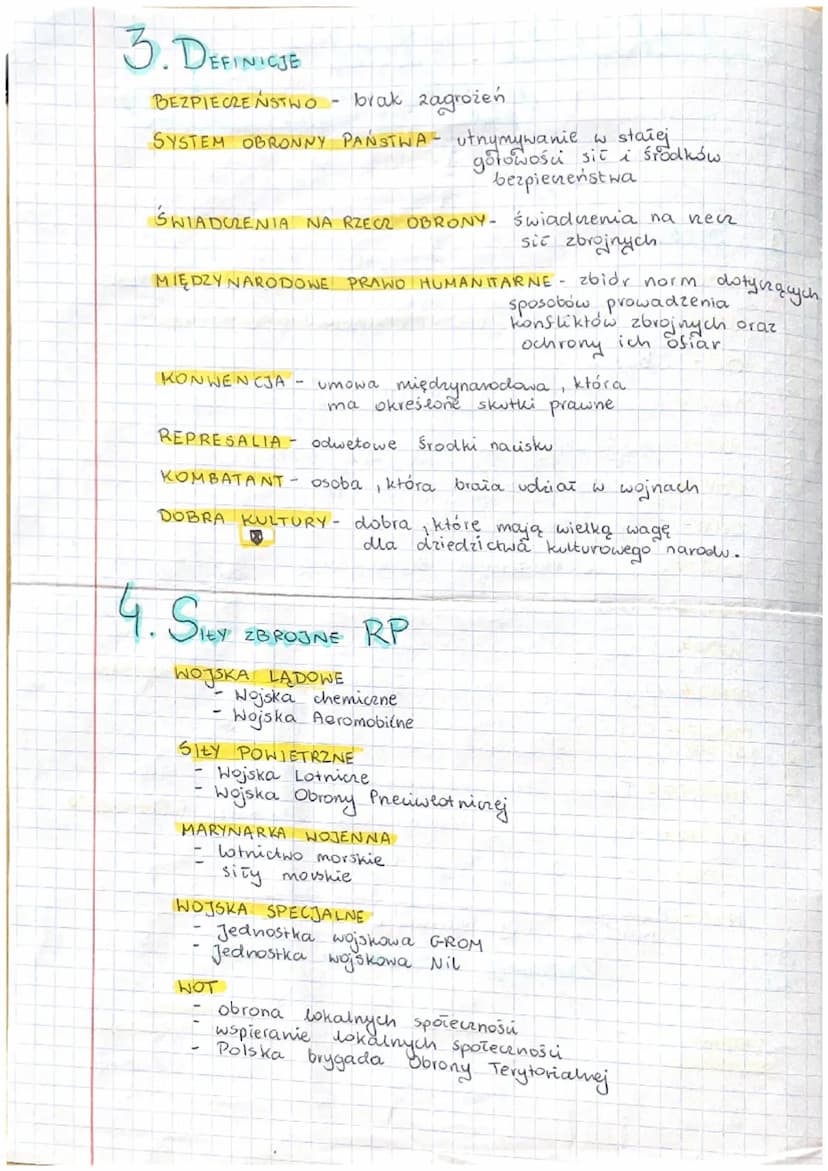 3. DEFINICJE
BEZPIECZEŃSTWO - brak zagrożeń
SYSTEM OBRONNY PAŃSTWA - utrzymywanie w stałej
gotowości sił i środków
bezpieczeństwa
ŚWIADCZENIA NA RZECZ OBRONY - świadczenia na rzecz
sił zbrojnych
MIĘDZYNARODOWE PRAWO HUMANITARNE - zbiór norm dotyczących
sposobów prowadzenia
konfliktów zbrojnych oraz
ochrony ich ofiar
KONWENCJA - umowa międzynarodowa, która
ma określone skutki prawne
REPRESALIA - odwetowe środki nacisku
KOMBATANT - osoba, która brała udział w wojnach
DOBRA KULTURY - dobra, które mają wielką wagę
dla dziedzictwa kulturowego narodu.
4. SIŁY ZBROJNE RP
WOJSKA LĄDOWE
- Wojska chemiczne
- Wojska Aeromobilne
SIŁY POWIETRZNE
- Wojska Lotnicze
- Wojska Obrony Przeciwlotniczej
MARYNARKA WOJENNA
- lotnictwo morskie
- siły morskie
WOJSKA SPECJALNE
- Jednostka wojskowa GROM
- Jednostka wojskowa Nil
WOT
- obrona lokalnych społeczności
- wspieranie lokalnych społeczności
- Polska brygada Obrony Terytorialnej